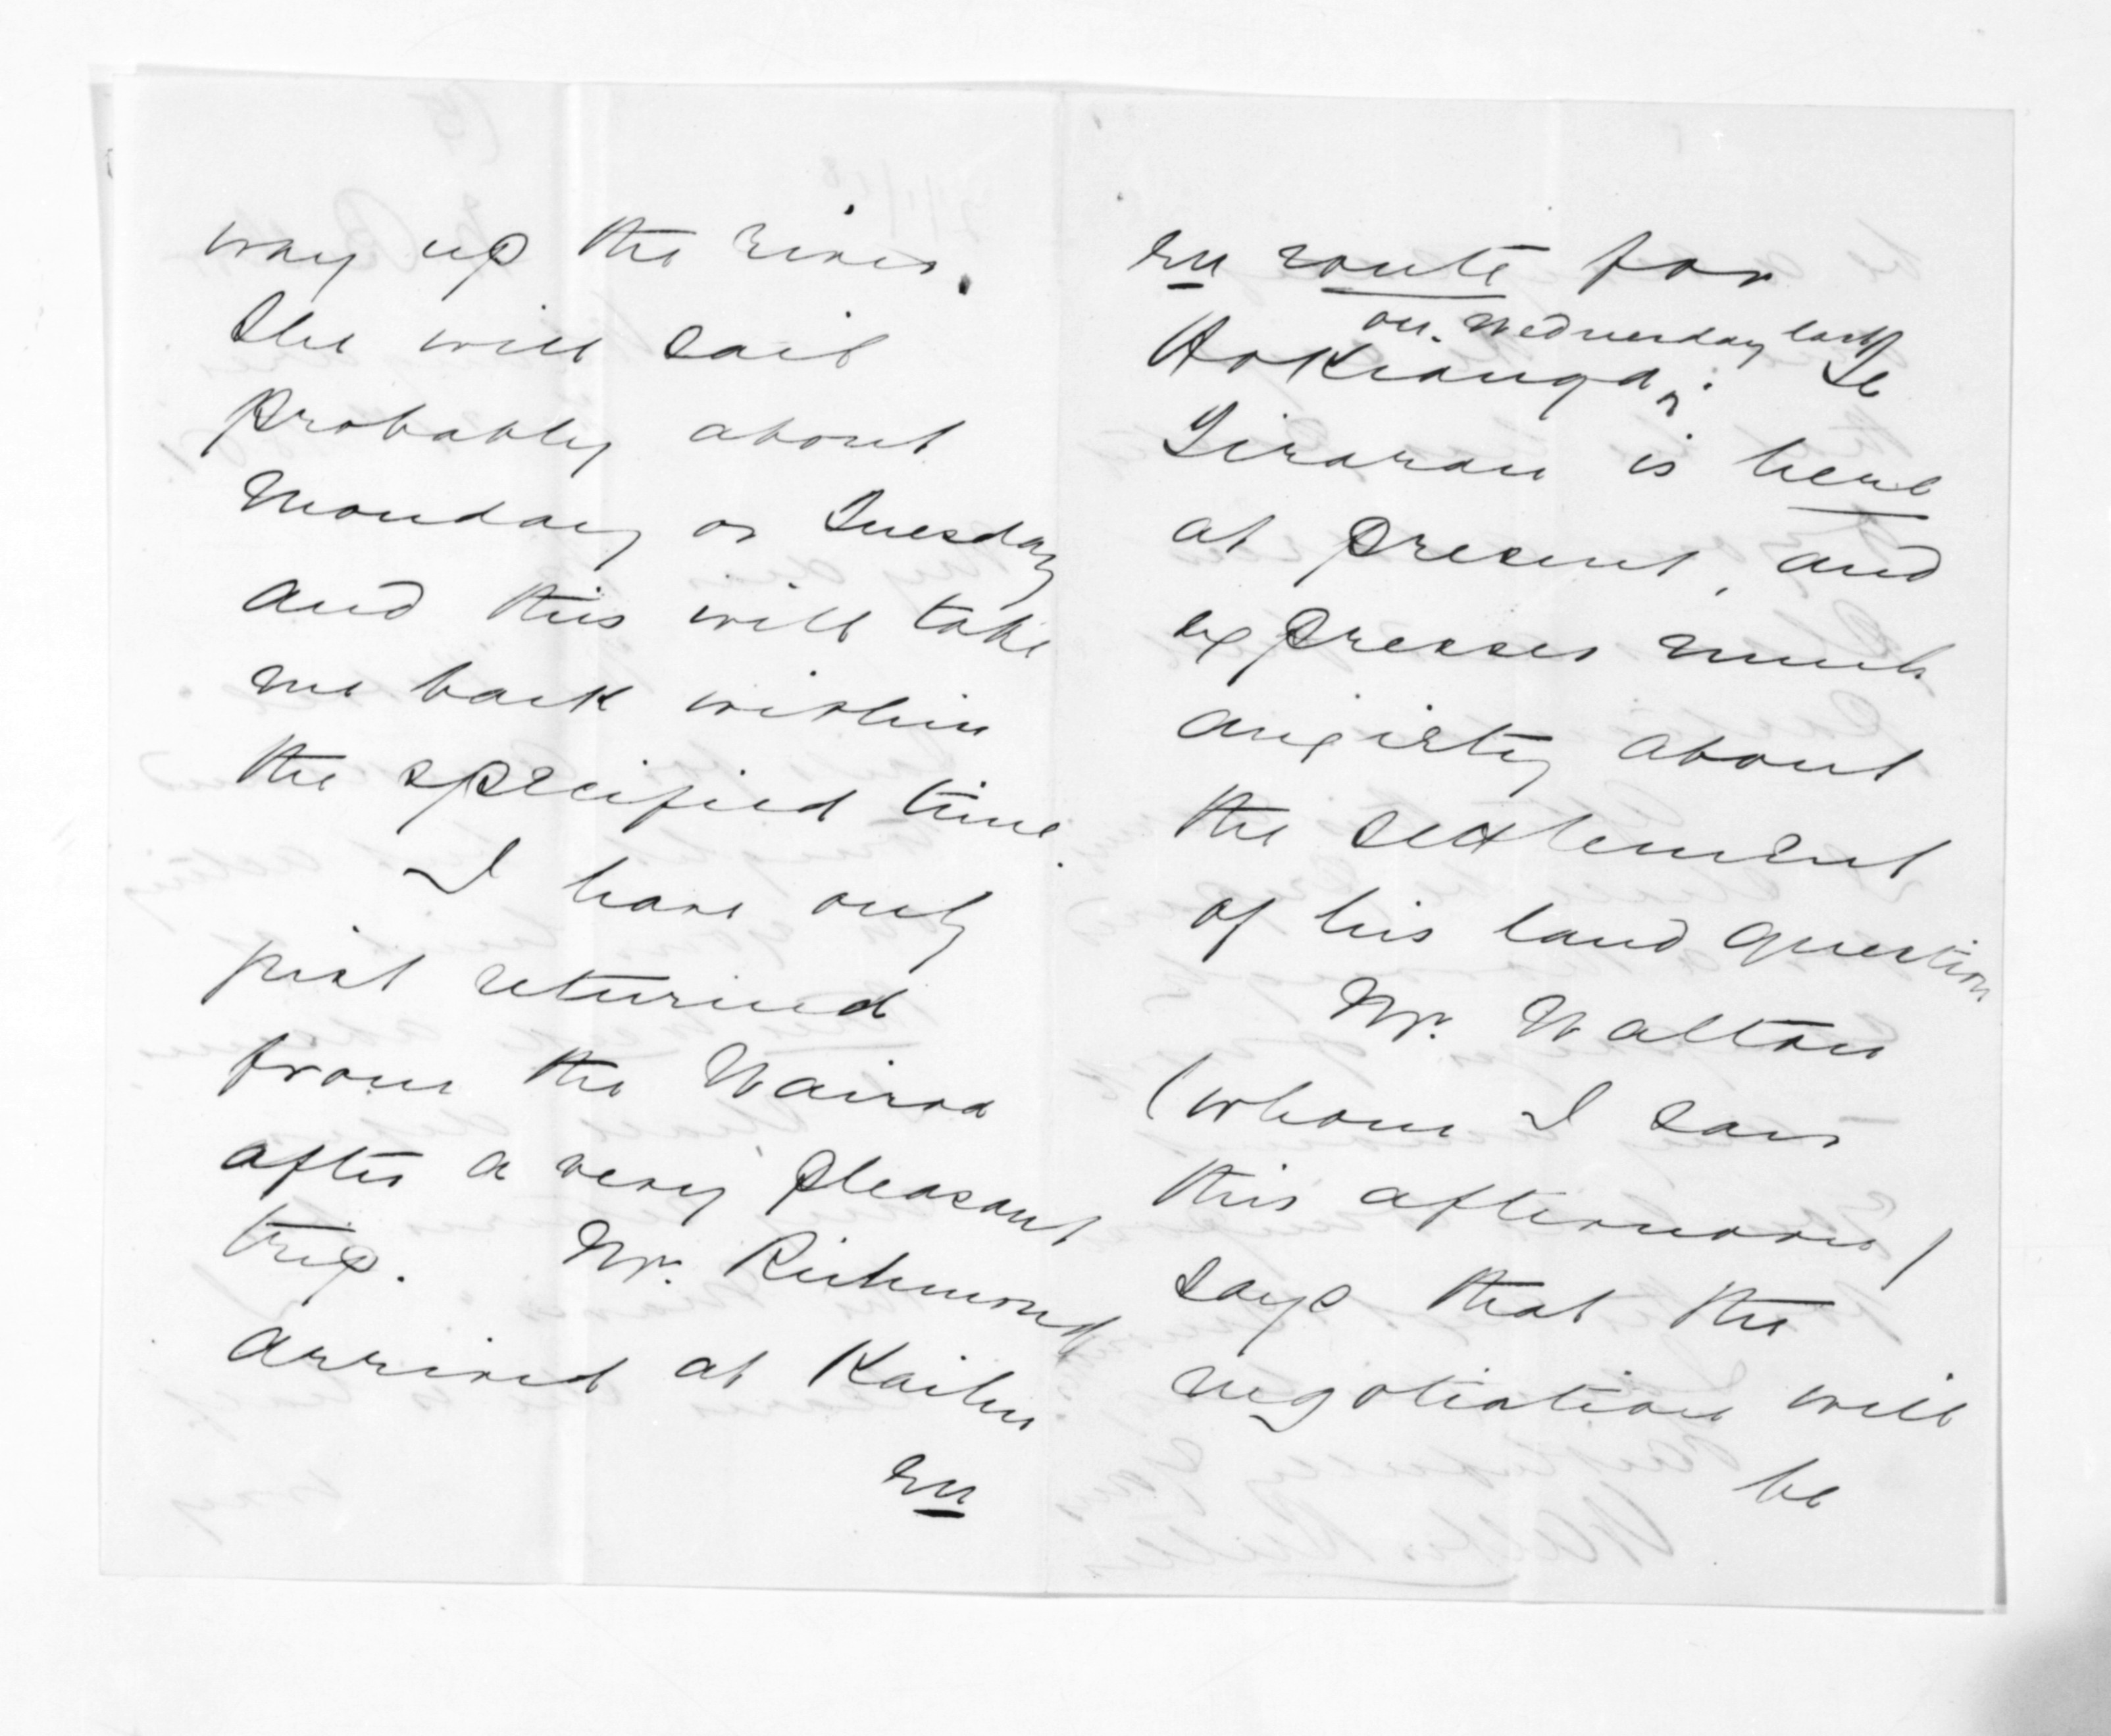 way up the river.
She will sail
probably about
Monday or Tuesday
and this will take
me back within
the specified time.
I have only
just returned
from the Wairoa
after a very pleasant
trip. Mr. Richmond
arrived at Kaihu
en
en route for
on Wednesday last
Hokianga. Te
Tirarau is here
at present, and
expresses much
anxiety about
the settlement
of his land question
Mr. Walton
(whom I saw
this afternoon)
says that the
negotiation will
be